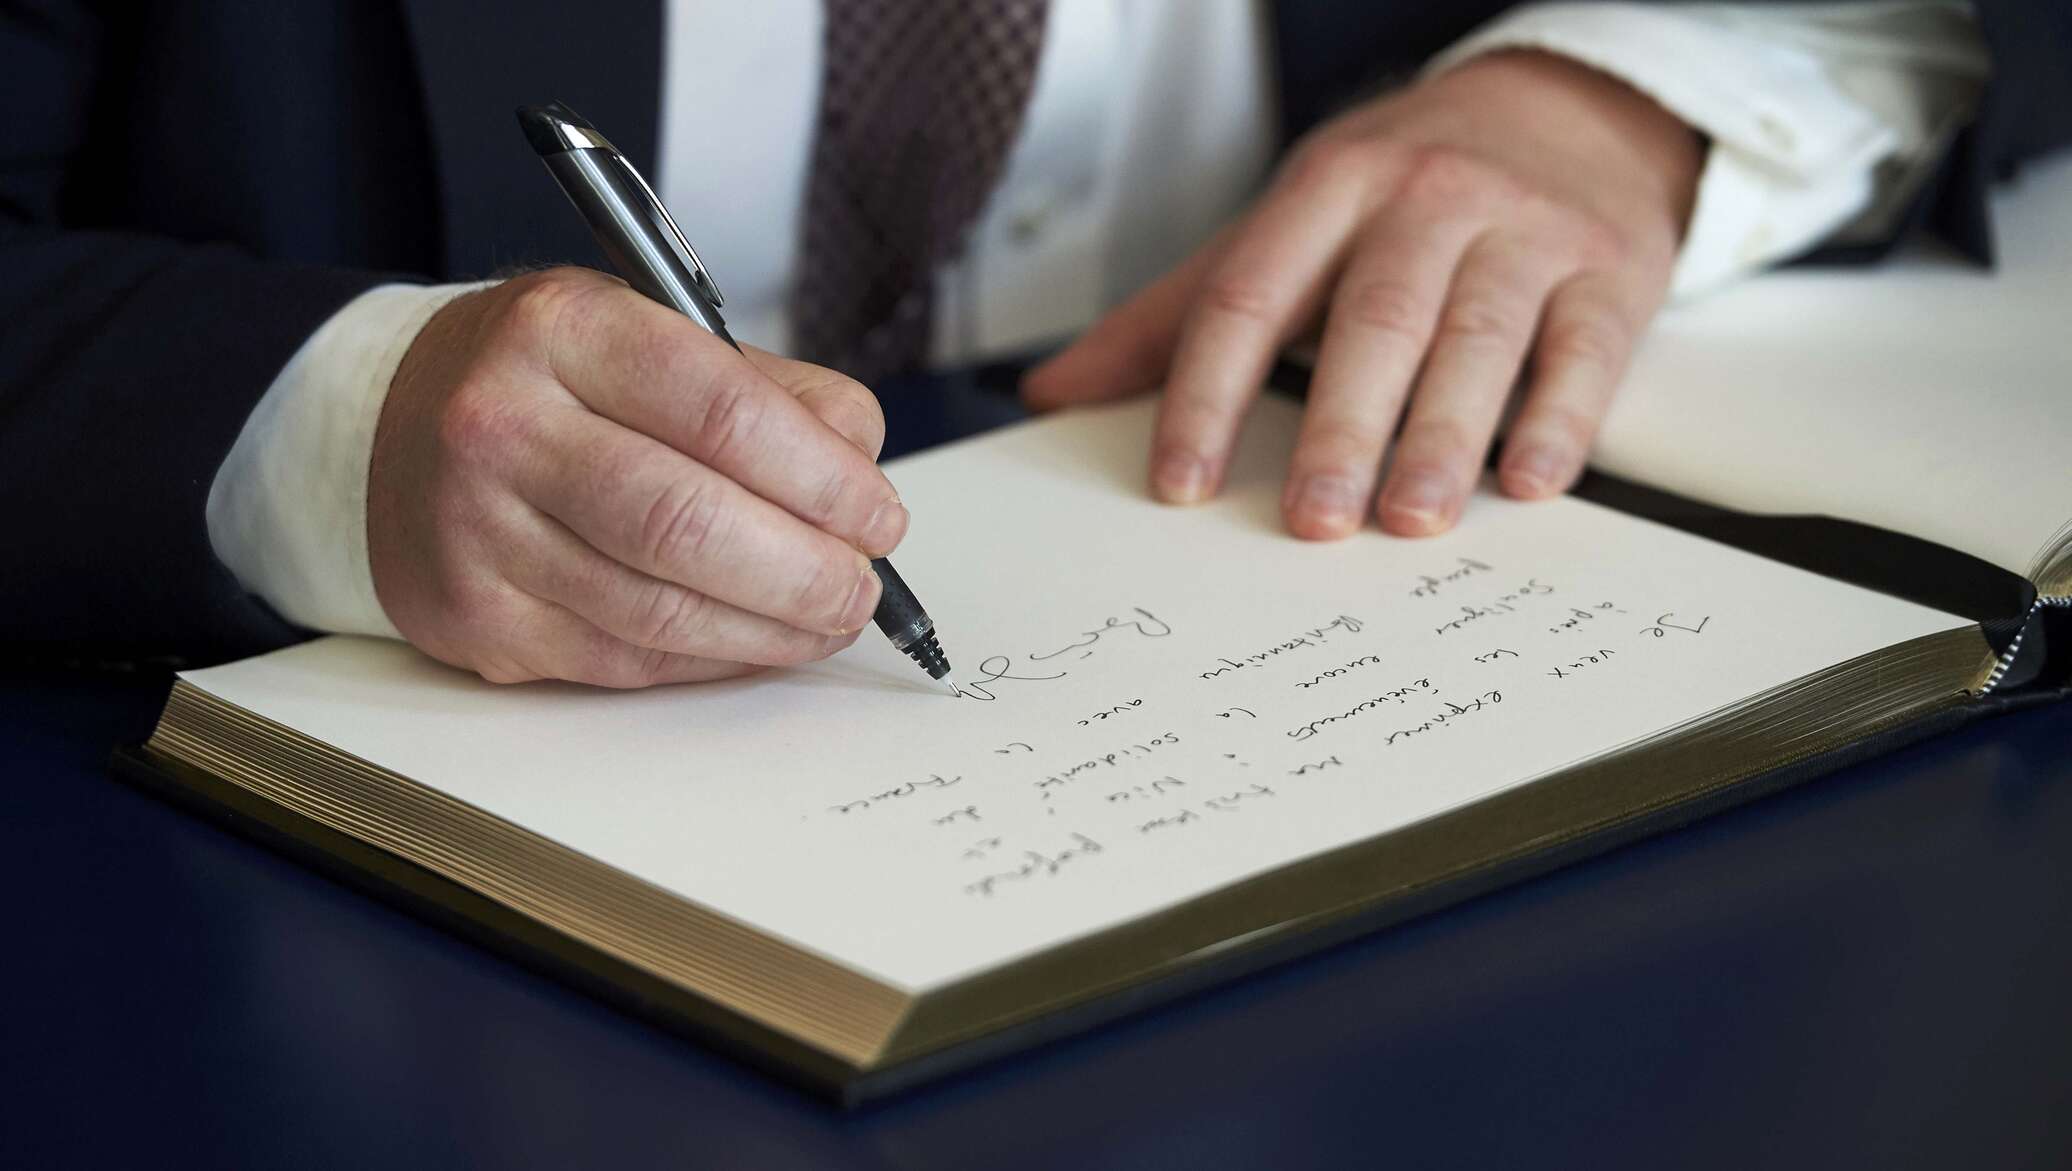 Je veux exprimer ma tristesse profonde
après les événements à Nice et
souligner encore la solidarité du
peuple Britannique avec la France